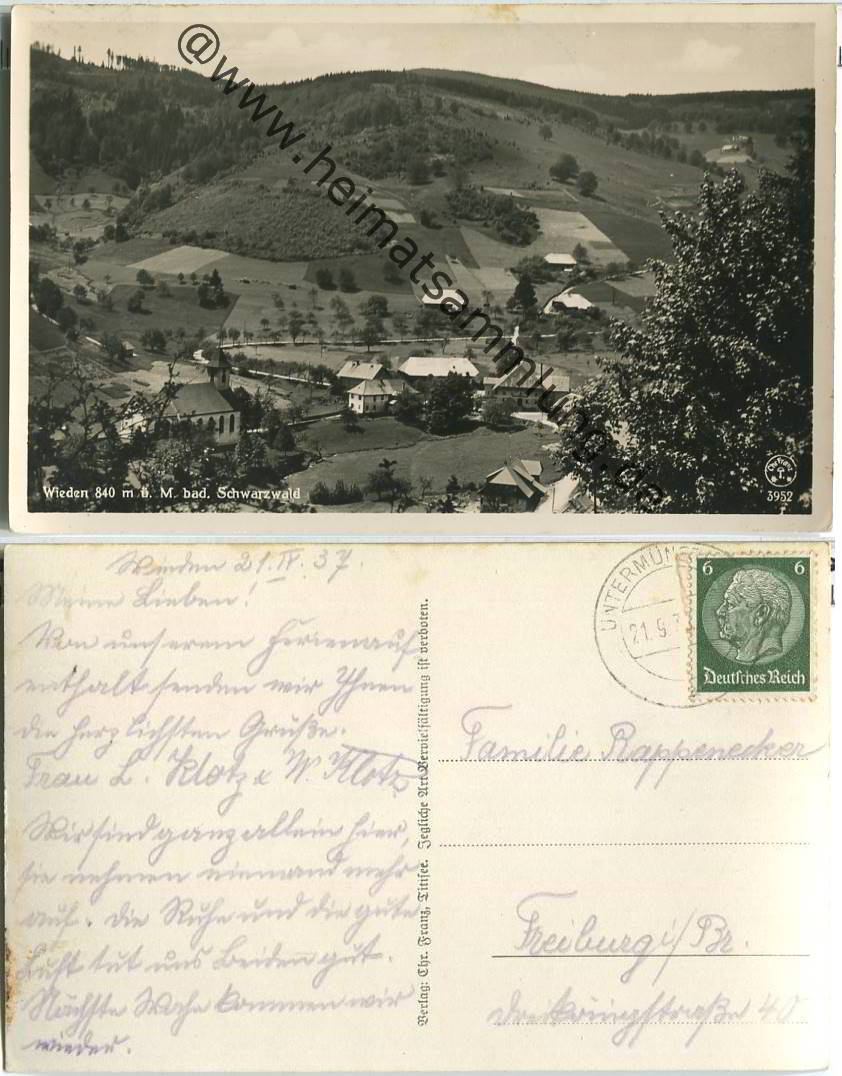 @www.heimatsammlung.de
Wieden 840 m ü. M. bad. Schwarzwald
Chr. Franz
T.
3952
Wieden 21. IX. 37.
Meine Lieben!
Von unserem Ferienauf
enthalt senden wir Ihnen
die herzlichsten Grüße.
Frau L. Klotz & W. Klotz
Wir sind ganz allein hier,
sie nehmen niemand mehr
auf. Die Ruhe und die gute
Luft tut uns Beiden gut.
Nächste Woche kommen wir
wieder.
Verlag: Chr. Franz, Titisee. Jegliche Art Vervielfältigung ist verboten.
UNTERMÜNST
21.9.3
6 6
Deutsches Reich
Familie Rappenecker
Freiburg i/Br.
Dreikönigstraße 40